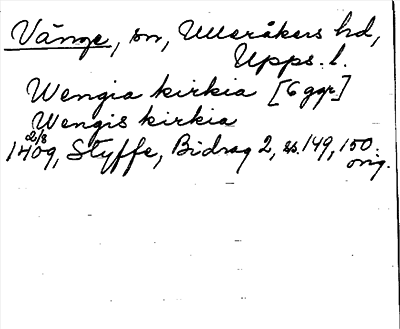 Vänge, sn, Ulleråkers hd,
Upps. l.
Wengia kirkia [6 ggr.]
Wengis kirkia
1409 2/8, Styffe, Bidrag 2, ss. 149, 150.
orig.